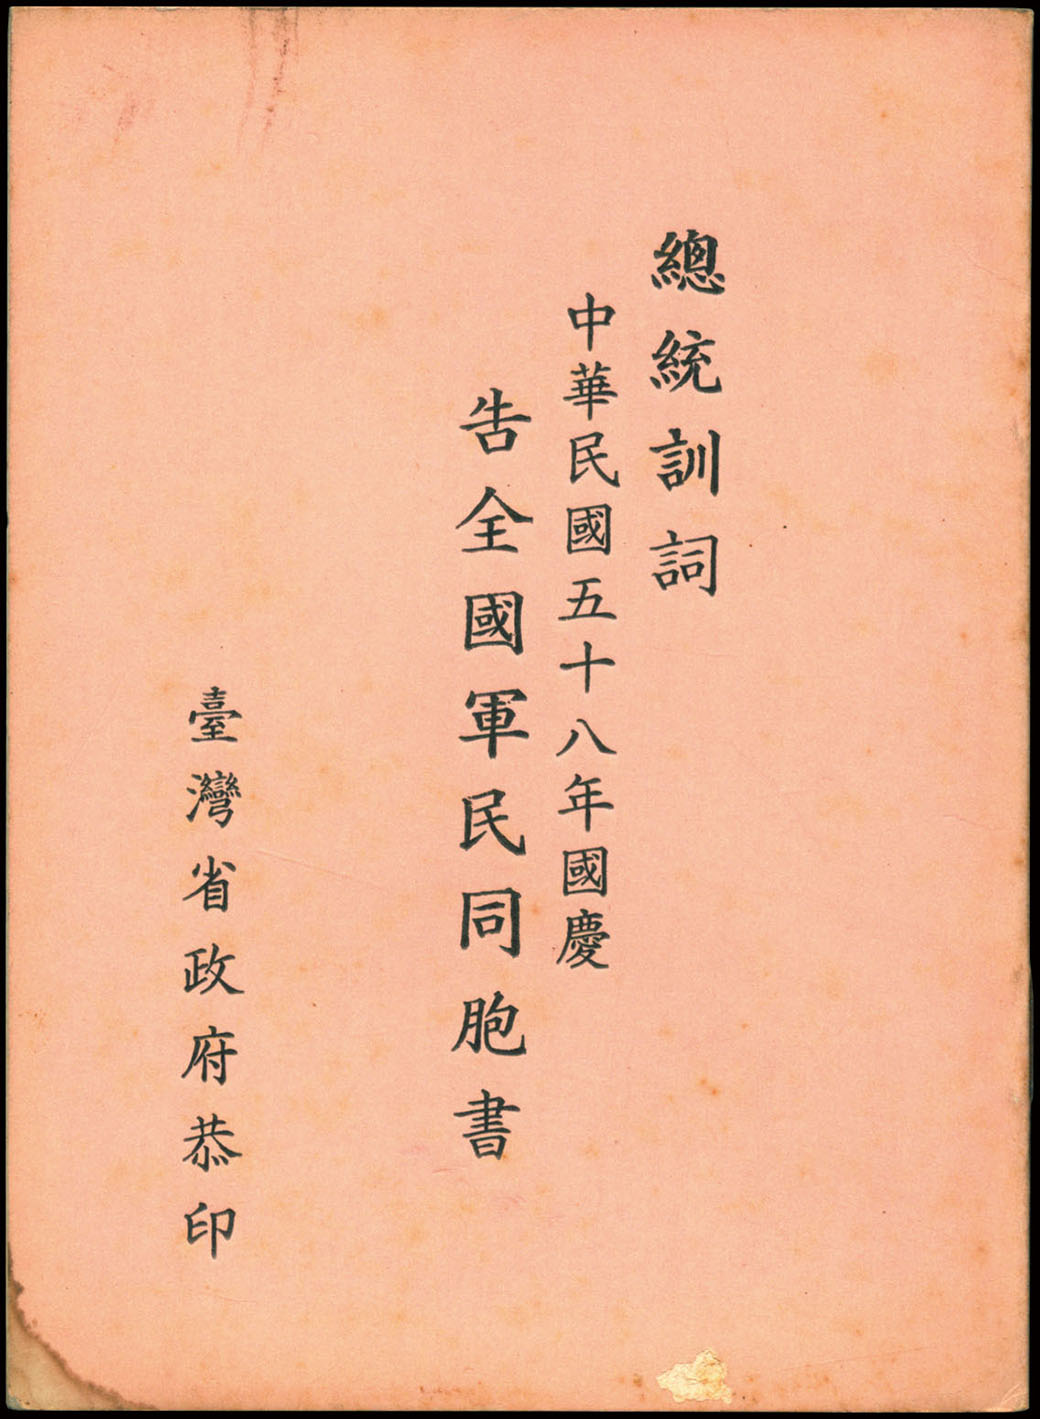 總統訓詞
中華民國五十八年國慶
告全國軍民同胞書
臺灣省政府恭印